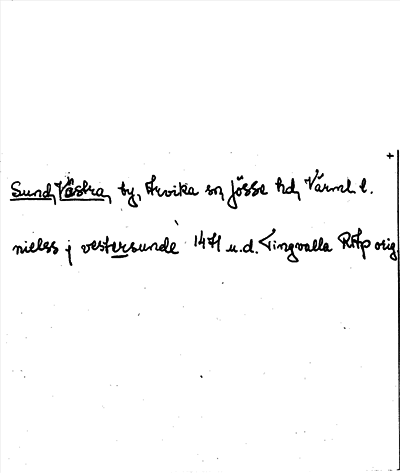 +
Sund, Västra, by, Arvika sn, Jösse hd, Värml. l.
nielss j vestersunde 1471 u.d. Tingvalla RAp orig